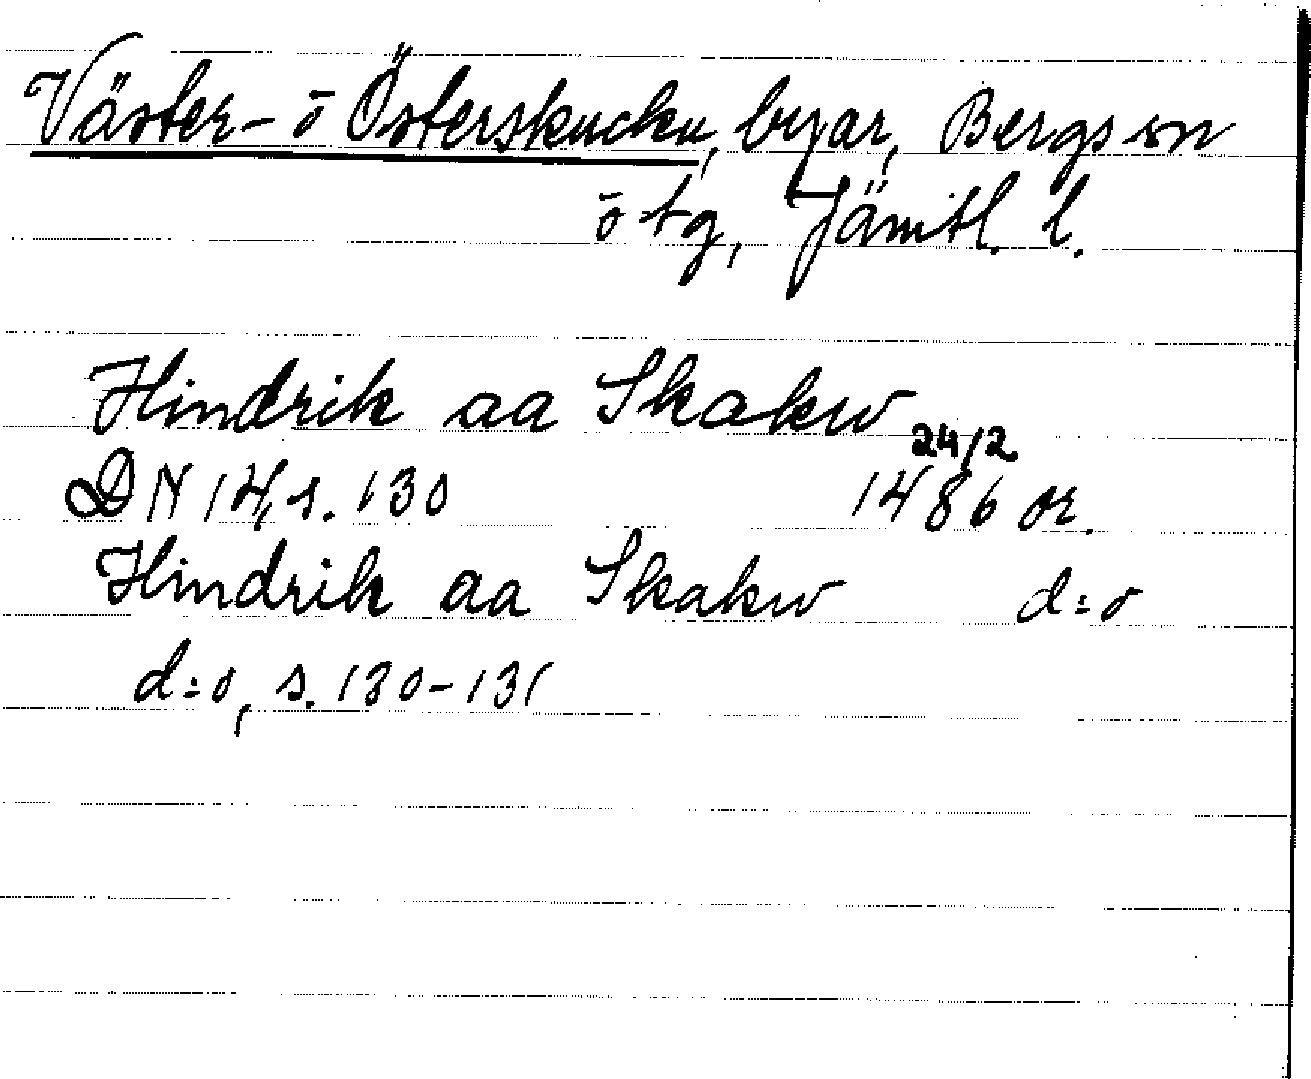 Väster- o Österskucku, byar, Bergs sn
o tg, Jämtl. l.
Hindrik aa Skakw
24/2
DN 14, s. 130 1486 or.
Hindrik aa Skakw d:o
d:o, s. 130-131